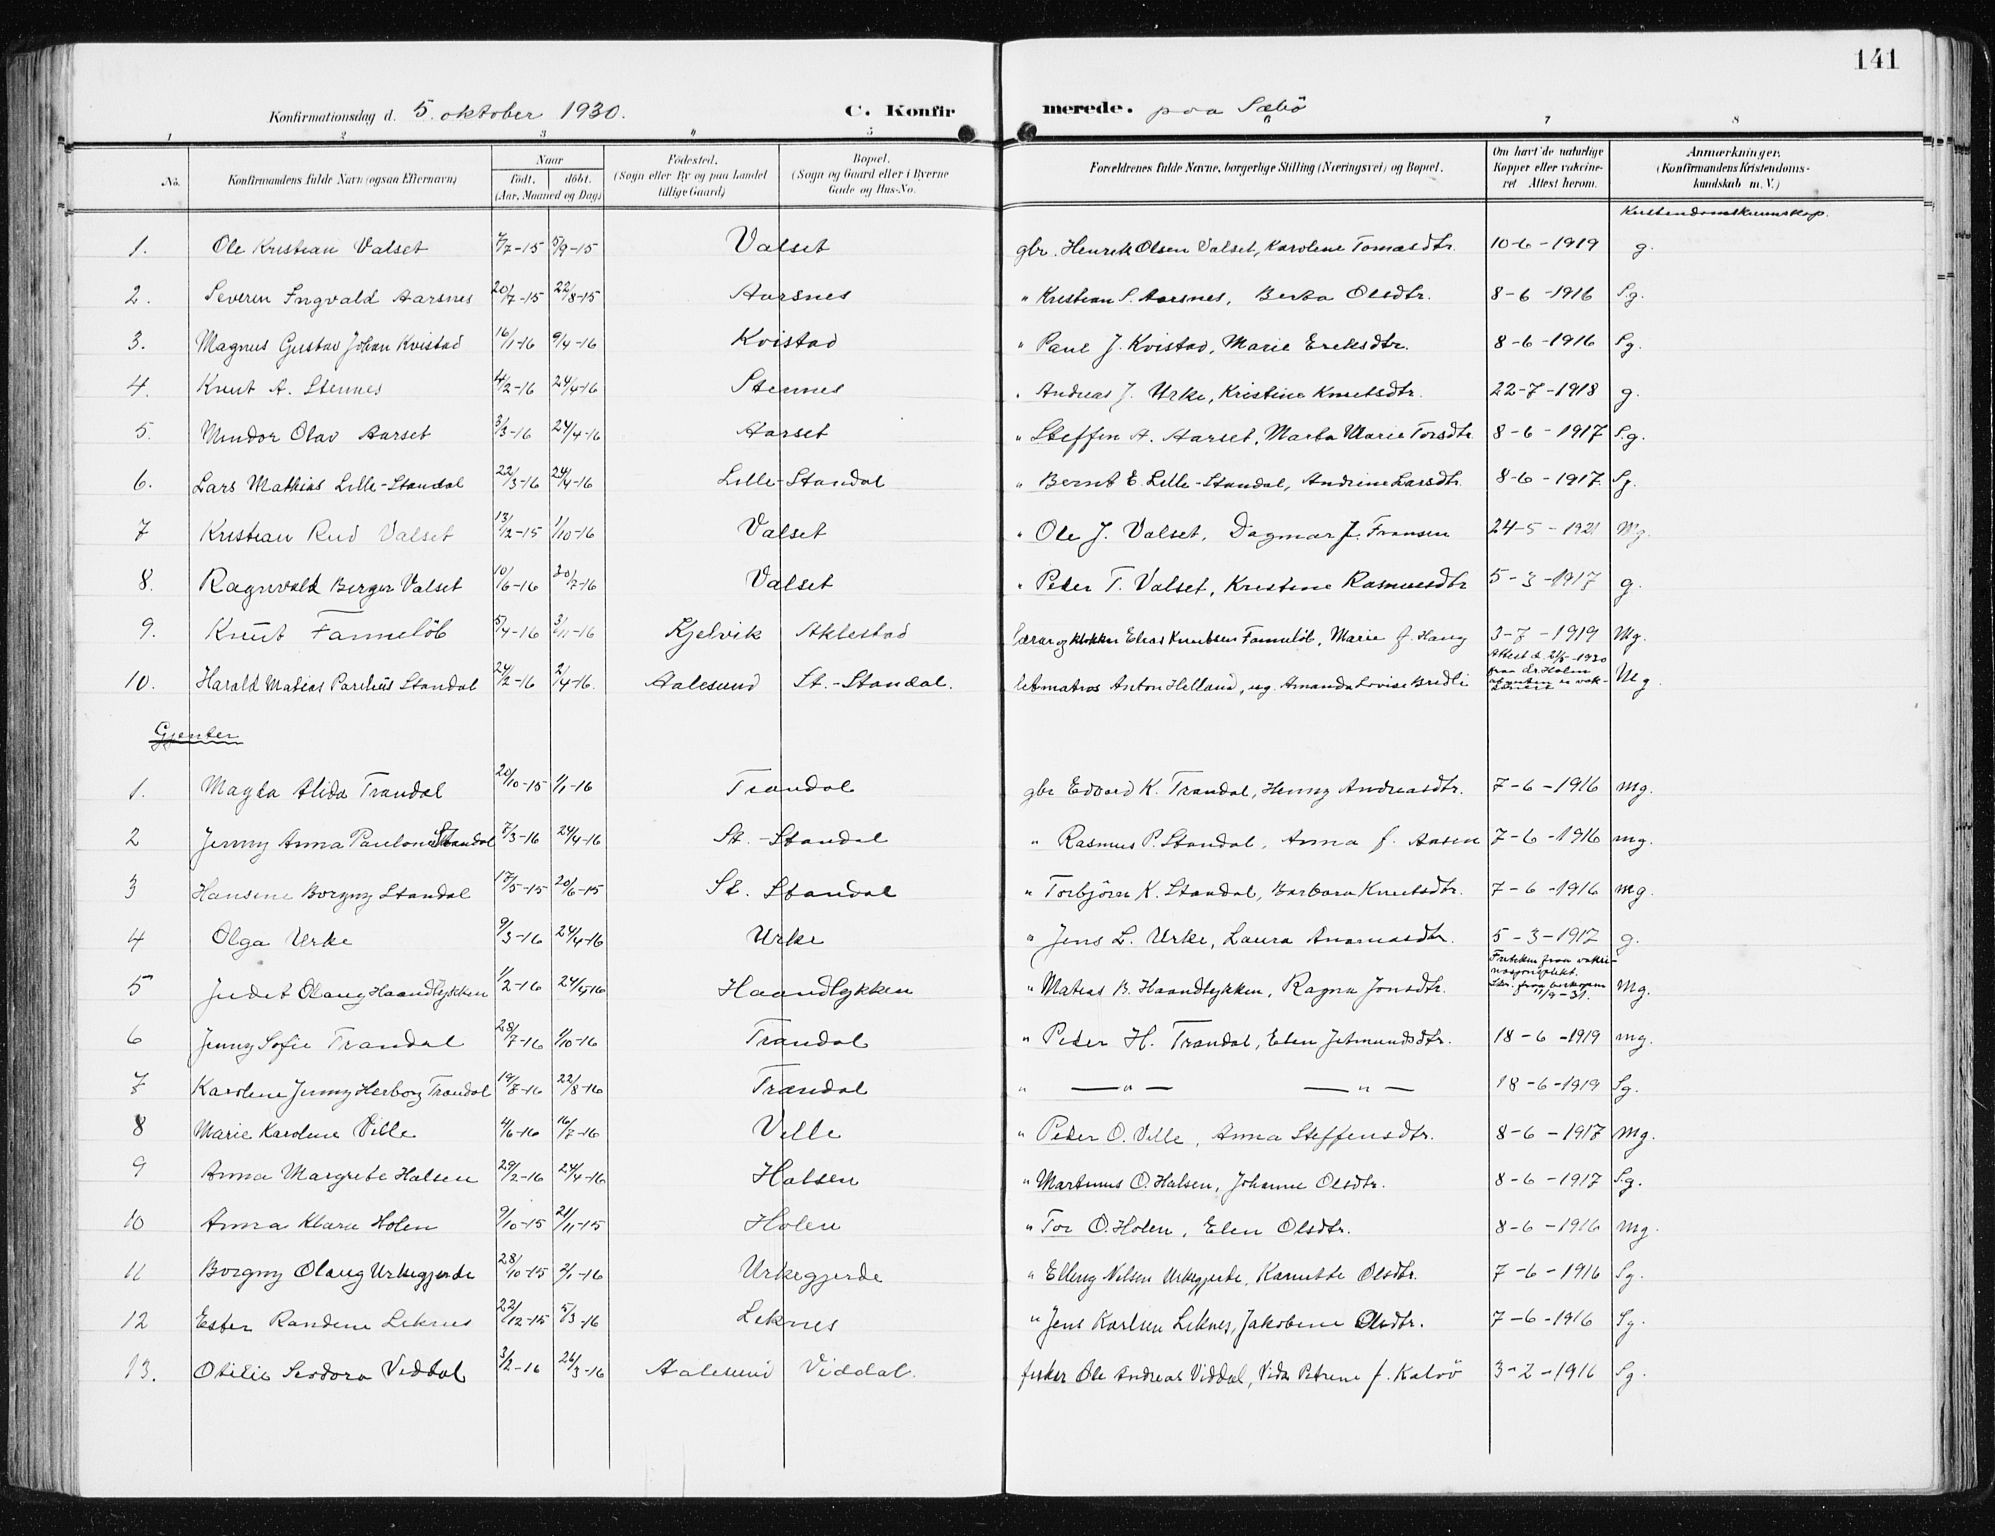 141
Konfirmationsdag d. 5. oktober 1930. C. Konfirmerede. paa Sæbö
1 2 3 4 5 6 7 8
No. Konfirmandens fulde Navn (ogsaa Efternavn) Naar født. døbt. (Aar, Maaned og Dag) Födested. (Sogn eller By og paa Landet tillige Gaard) Bopæl. (Sogn og Gaard eller i Byerne Gade og Hus-No. Forældrenes fulde Navne, borgerlige Stilling (Næringsvei) og Bopæl. Om havt de naturlige Kopper eller vaccineret Attest herom. Anmærkninger. (Konfirmandens Kristendomskundskab m. V.)
Kristendomskunnskap.
1. Ole Kristian Valset 7/7-15 5/9-15 Valset gbr. Henrik Olsen Valset, Karolene Tomasdtr. 10-6-1919 g.
2. Severin Ingvald Aarsnes 20/7-15 22/8-15 Aarsnes " Kristian S. Aarsnes, Berta Olsdtr. 8-6-1916 S.g.
3. Magnus Gustav Johan Kvistad 16/1-16 9/4-16 Kvistad " Paul J. Kvistad, Marie Eriksdtr. 8-6-1916 Sg.
4. Knut A. Stennes 4/2-16 24/4-16 Stennes " Andreas J. Urke, Kristine Knutsdtr. 22-7-1918 g.
5. Mindor Olav Aarset 3/3-16 24/4-16 Aarset " Steffen A. Aarset, Marta Marie Torsdtr. 8-6-1917 S.g.
6. Lars Mathias Lille-Standal 22/3-16 24/4-16 Lille-Standal " Bernt E. Lille-Standal, Andrine Larsdtr. 8-6-1917. Sg.
7 Kristian Rud Valset 13/12-15 1/10-16 Valset " Ole J. Valset, Dagmar f. Fransen 24-5-1921 Mg.
8. Ragnvald Berger Valset 10/6-16 30/7-16 Valset " Peder T. Valset, Kristine Rasmusdtr 5-3-1917 g.
9. Knut Fannelöb 5/4-16 3/11-16 Kjelvik Aklestad lærar og klokker Elias Knutsen Fannelöb, Marie f. Haug 3-7-1919 Mg.
10. Harald Matias Parelius Standal 24/2-16 2/4-16. Aalesund St.-Standal. letmatros Anton Helland, ug. Amanda Lovise Bredli Attest d. 2/5-1930 fraa dr. Holm Mg.
Gjenter
1. Magda Alida Trandal 20/10-15 1/1-16 Trandal gbr Edvard K. Trandal, Henny Andreasdtr. 7-6-1916 mg.
2 Jenny Anna Pauline Standal 7/3-16 24/4-16 St.-Standal " Rasmus P. Standal, Anna f. Aasen 7-6-1916 mg.
3 Hansine Borgny Standal 17/5-15 20/6-15 St. Standal " Torbjörn K. Standal, Barbara Knutsdtr. 7-6-1916 mg.
4 Olga Urke 9/3-16 24/4-16 Urke " Jens L. Urke, Laura 5-3-1917 g.
5 Judit Olaug Haandlykken 1/2-16 24/4-16 Haandlykken " Matias B. Haandlykken, Ragna Jonsdtr. 11/9-31. Mg.
6 Jenny Sofie Trandal 28/7-16 1/10-16 Trandal " Peder H. Trandal, Elen Jetmundsdtr. 18-6-1919 mg.
7 Karolene Jenny Herborg Trandal 19/7-16 22/8-16 Trandal " — " — — " — 18-6-1919 Sg.
8 Marie Karolene Ville 4/6-16 16/7-16 Ville " Peder O. Ville, Anna Steffensdtr. 8-6-1917 Mg.
9 Anna Margrete Halsen 29/2-16 24/4-16 Halsen " Martinus O. Halsen, Johanne Olsdtr. 8-6-1917 S.g.
10 Anna Klara Holen 9/10-15 21/11-15 Holen " Tor O. Holen, Elen Olsdtr. 8-6-1916 Mg.
11 Borgny Olaug Urkegjerde 28/10-15 2/1-16 Urkegjerde " Elling Nilsen Urkegjerde, Olsdtr. 7-6-1916 Sg.
12 Ester Randine Leknes 22/12-15 5/3-16 Leknes " Jens Karlsen Leknes, Jakobine Olsdtr. 7-6-1916 Sg.
13. Otilie Teodora Viddal 3/2-16 26/3-16 Aalesund Viddal. fisker Ole Andreas Viddal, Vida Petrine f. Kalvö 3-2-1916 Sg.